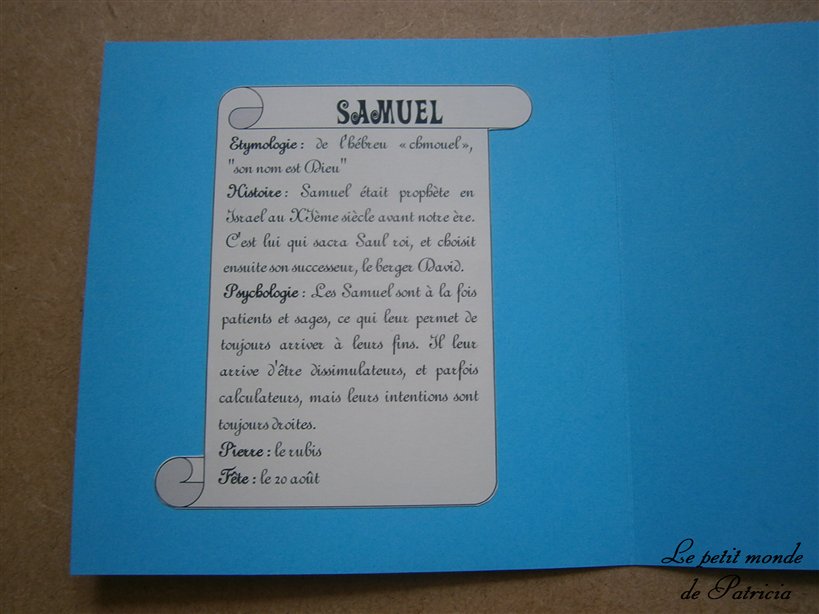 SAMUEL
Etymologie : de l'hébreu « chmouel »,
"son nom est Dieu"
Histoire : Samuel était prophète en
Israel au XIème siècle avant notre ère.
C'est lui qui sacra Saul roi, et choisit
ensuite son successeur, le berger David.
Psychologie : Les Samuel sont à la fois
patients et sages, ce qui leur permet de
toujours arriver à leurs fins. Il leur
arrive d'être dissimulateurs, et parfois
calculateurs, mais leurs intentions sont
toujours droites.
Pierre : le rubis
Fête : le 20 août
Le petit monde
de Patricia